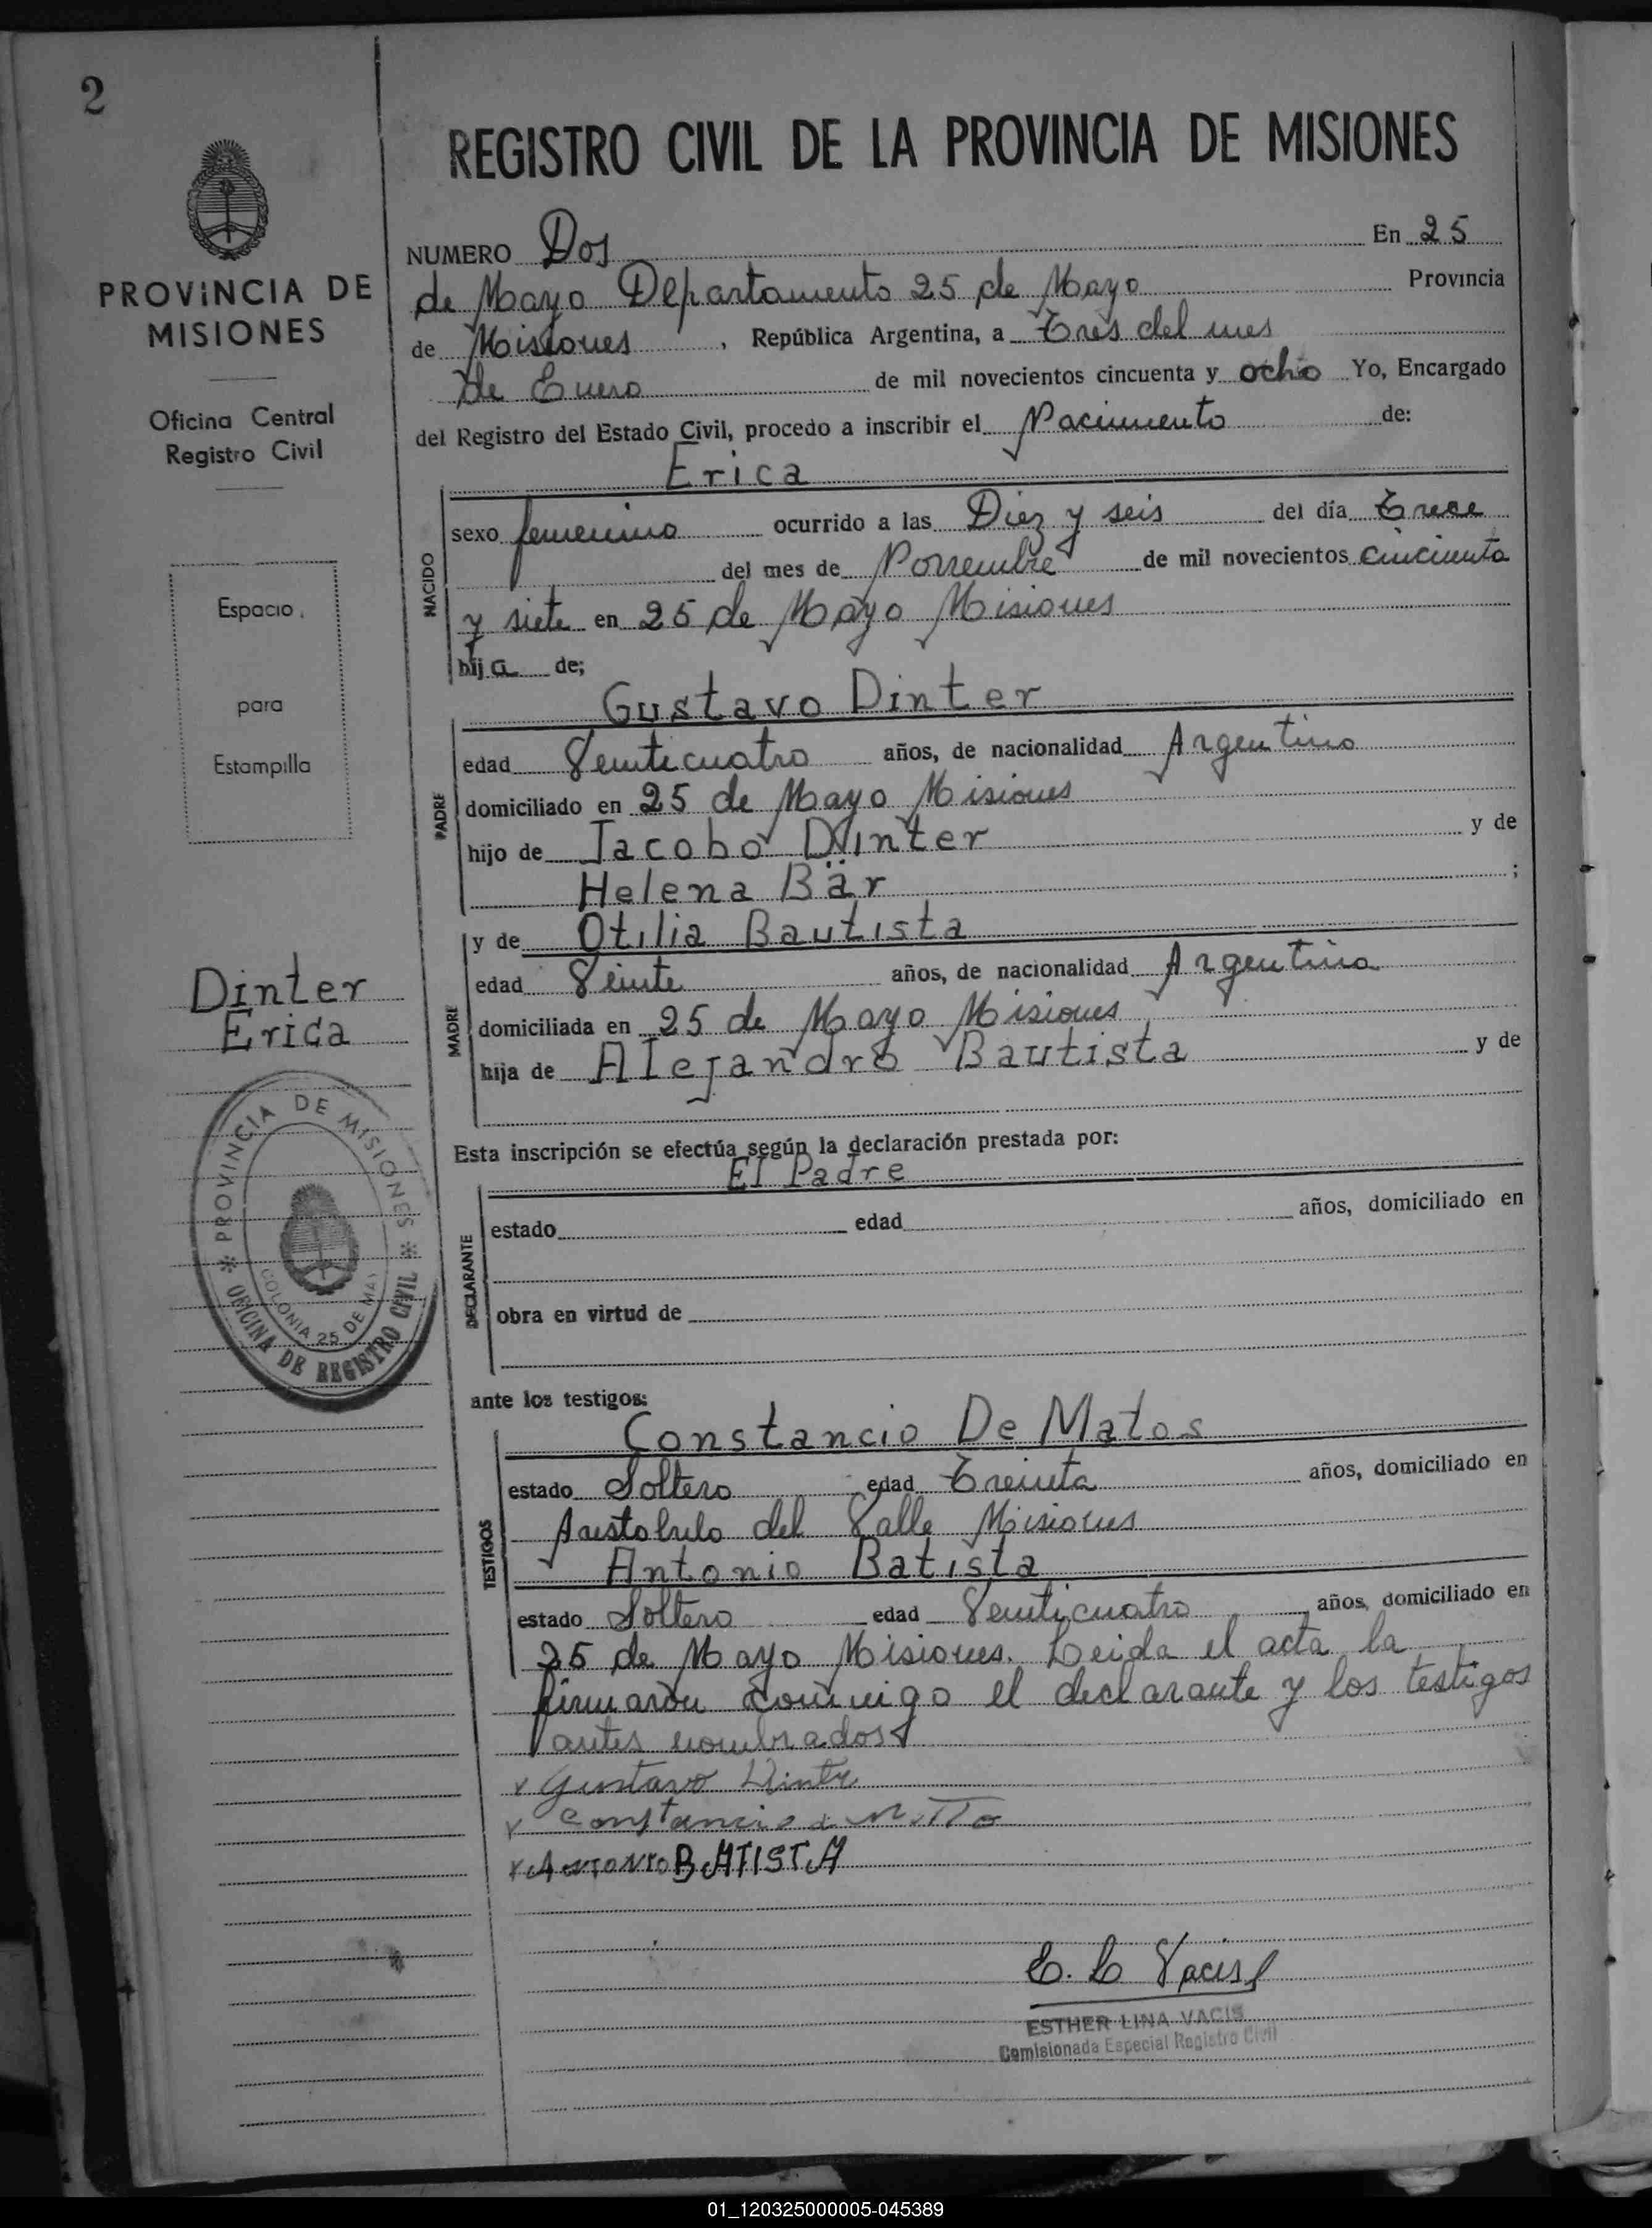 2
REGISTRO CIVIL DE LA PROVINCIA DE MISIONES
PROVINCIA DE
MISIONES
Oficina Central
Registro Civil
Espacio
para
Estampilla
Dinter
Erica
PROVINCIA DE MISIONES
COLONIA 25 DE MAY
OFICINA DE REGISTRO CIVIL
NUMERO Dos En 25
de Mayo Departamento 25 de Mayo Provincia
de Misiones, República Argentina, a Tres del mes
de Enero de mil novecientos cincuenta y ocho Yo, Encargado
del Registro del Estado Civil, procedo a inscribir el Nacimiento de:
Erica
NACIDO
sexo femenino ocurrido a las Diez y seis del día Trece
del mes de Noviembre de mil novecientos cincuenta
y siete en 25 de Mayo Misiones
hija de;
Gustavo Dinter
PADRE
edad Veinticuatro años, de nacionalidad Argentino
domiciliado en 25 de Mayo Misiones
hijo de Jacobo Dinter y de
Helena Bär ;
y de Otilia Bautista
MADRE
edad Veinte años, de nacionalidad Argentina
domiciliada en 25 de Mayo Misiones
hija de Alejandro Bautista y de
Esta inscripción se efectúa según la declaración prestada por:
El Padre
DECLARANTE
estado edad años, domiciliado en
obra en virtud de
ante los testigos:
Constancio De Matos
TESTIGOS
estado Soltero edad Treinta años, domiciliado en
Aristobulo del Valle Misiones
Antonio Batista
estado Soltero edad Veinticuatro años, domiciliado en
25 de Mayo Misiones. Leida el acta la
firmaron conmigo el declarante y los testigos
antes nombrados
x Gustavo Dinter
x Constancio d
x Antonio BATISTA
E. L Vacis
ESTHER LINA VACIS
Comisionada Especial Registro Civil
01_120325000005-045389